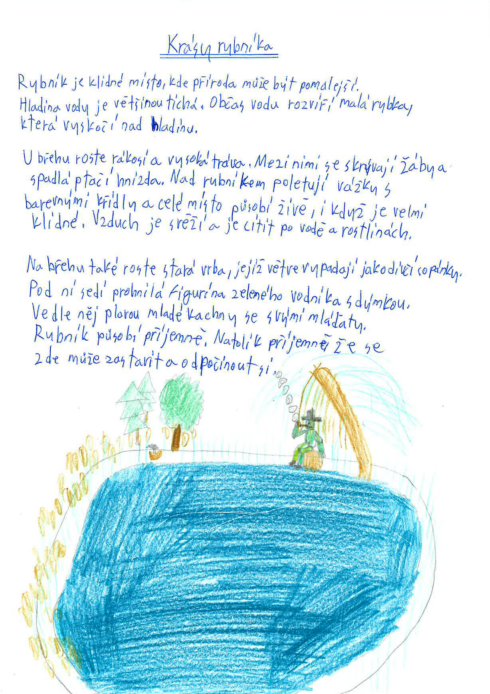 Krásy rybníka
Rybník je klidné místo, kde příroda může být pomalejší.
Hladina vody je většinou tichá. Občas vodu rozvíří malá rybka,
která vyskočí nad hladinu.
U břehu roste rákosí a vysoká tráva. Mezi nimi se skrývají žáby a
spadlá ptačí hnízda. Nad rybníkem poletují vážky s
barevnými křídly a celé místo působí živě, i když je velmi
klidné. Vzduch je svěží a je cítit po vodě a rostlinách.
Na břehu také roste stará vrba, jejíž větve vypadají jako dívčí copánky.
Pod ní sedí prohnilá figurína zeleného vodníka s dýmkou.
Vedle něj plovou mladé kachny se svými mláďaty.
Rybník působí příjemně. Natolik příjemně, že se
zde může zastavit a odpočinout si.